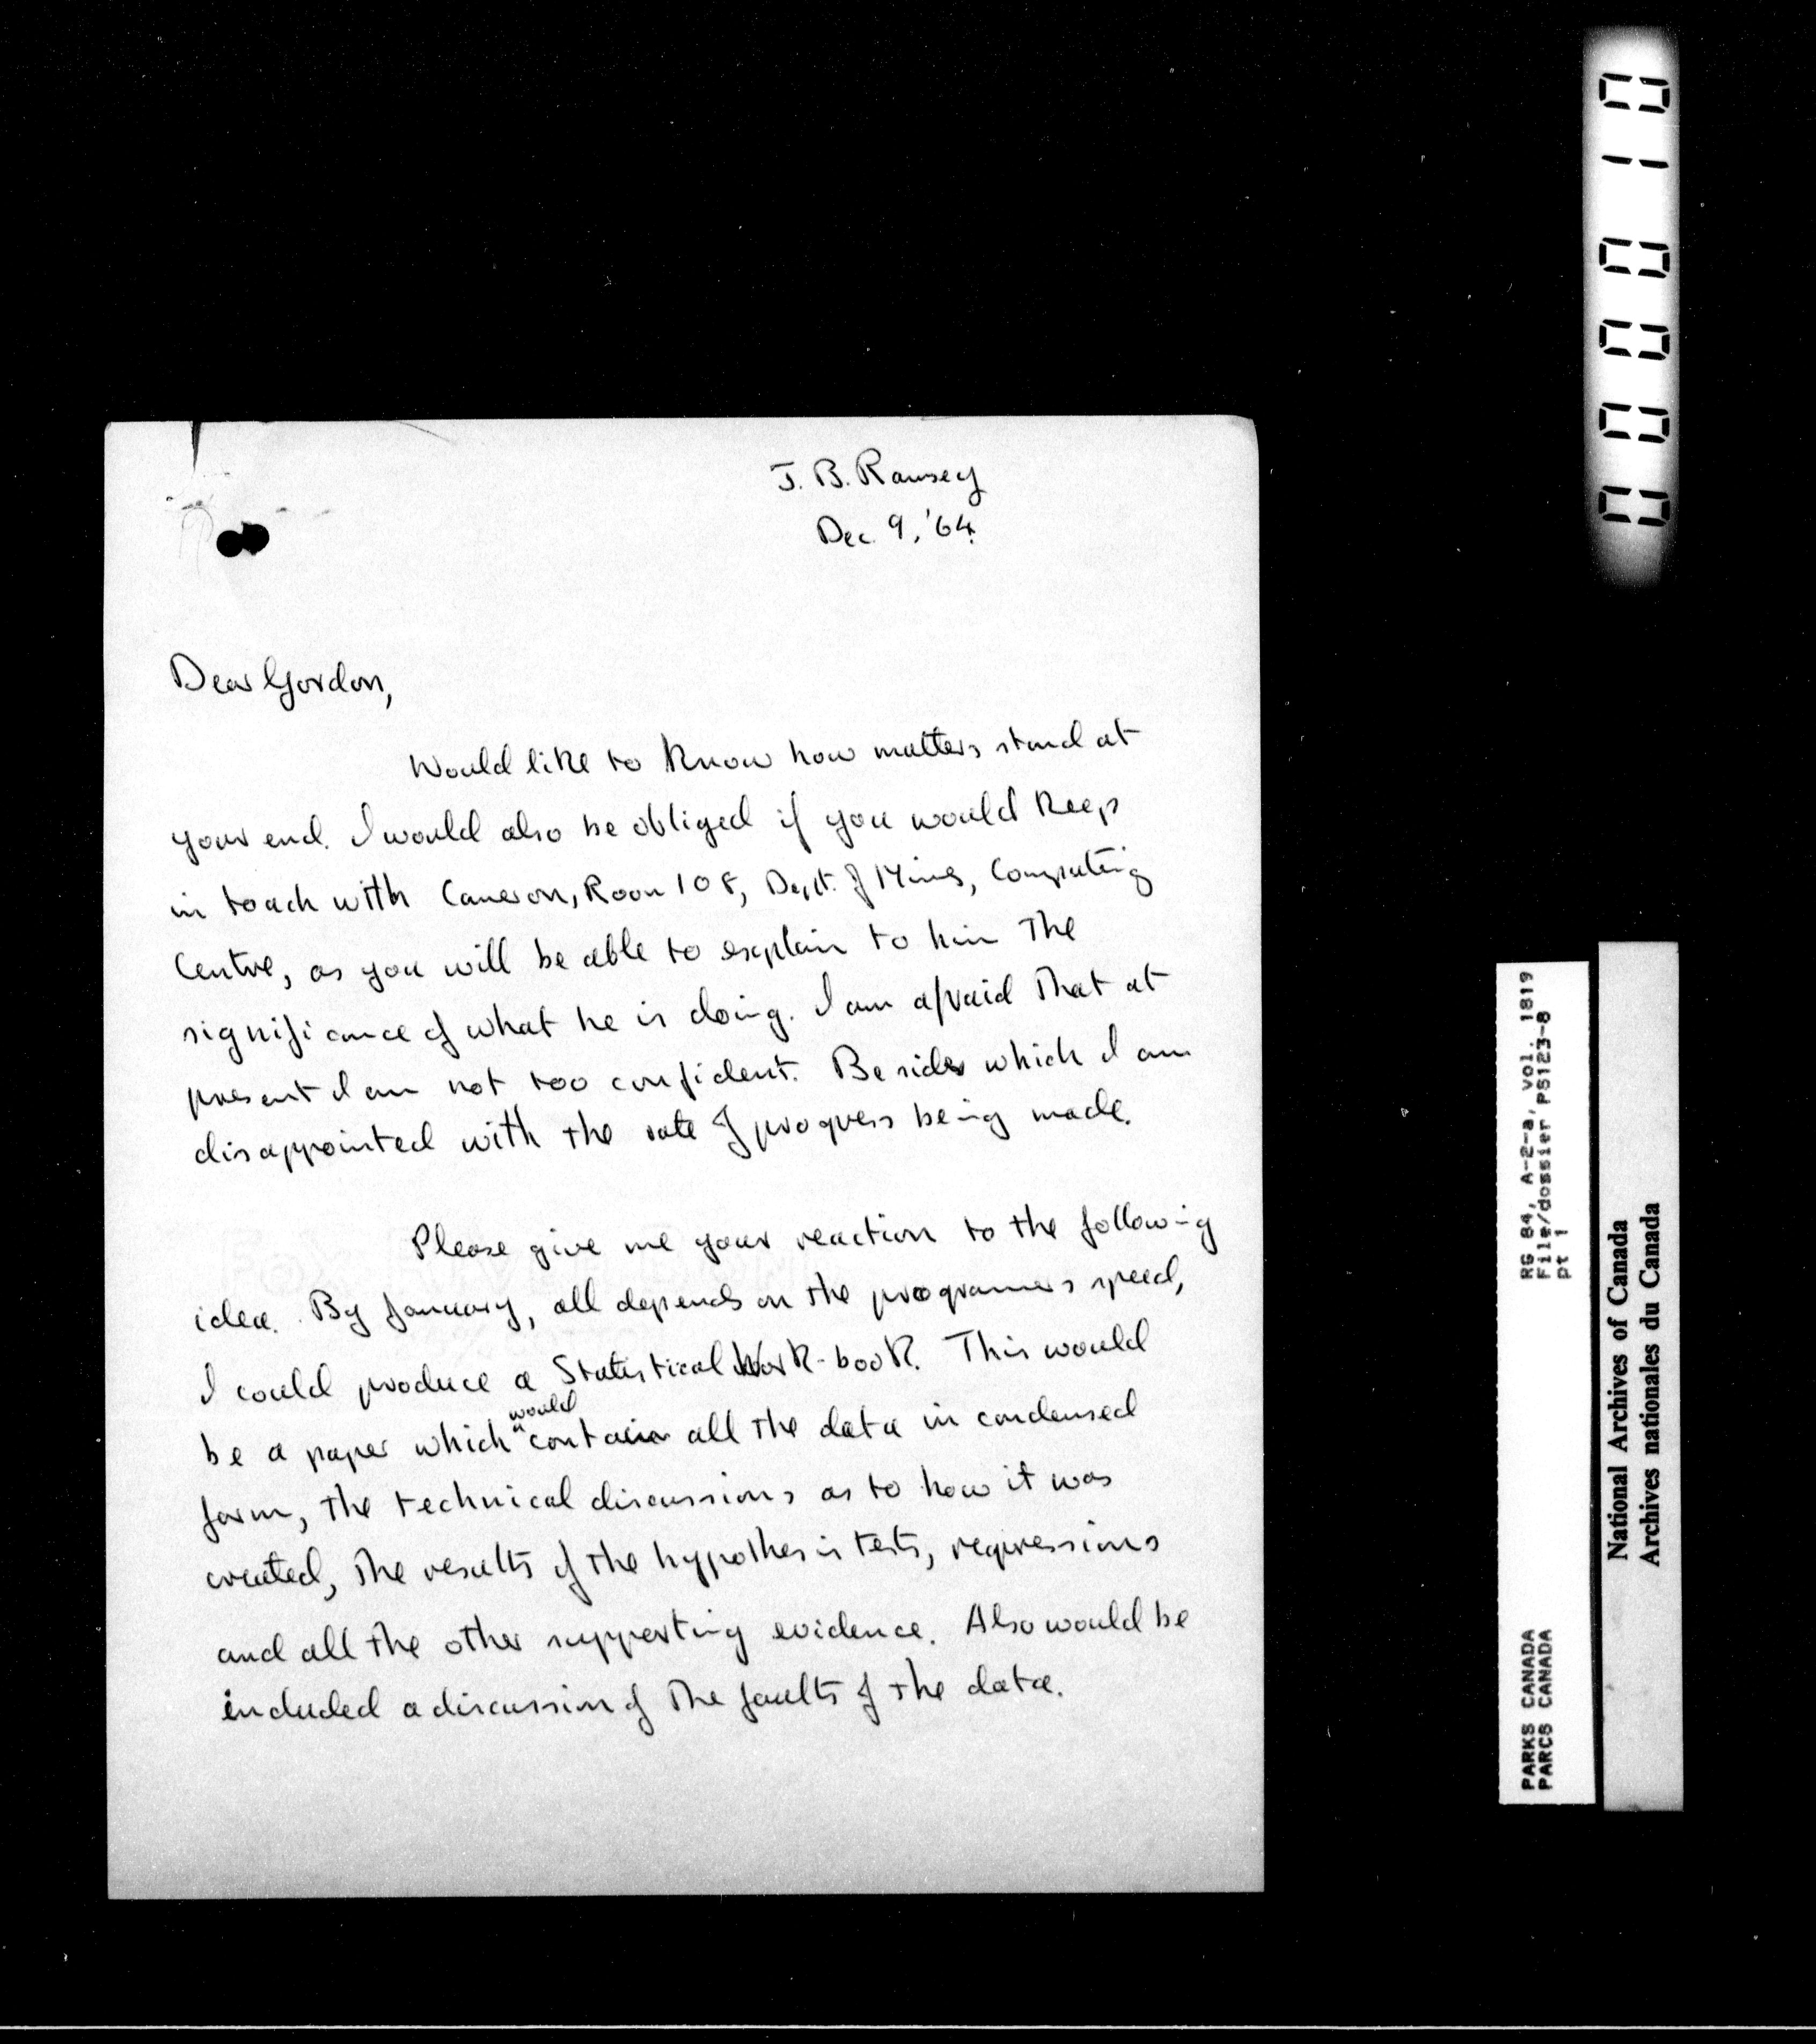 J. B. Ramsey
Dec. 9, '64.
Dear Gordon,
Would like to know how matters stand at
your end. I would also be obliged if you would keep
in touch with Cameron, Room 108, Dept. of Mines, Computing
Centre, as you will be able to explain to him the
significance of what he is doing. I am afraid that at
present I am not too confident. Besides which I am
disappointed with the rate of progress being made.
Please give me your reaction to the following
idea. By January, all depends on the programers speed,
I could produce a Statistical Work-book. This would
be a paper which would contain all the data in condensed
form, the technical discussions as to how it was
created, the results of the hypothesis tests, regressions
and all the other supporting evidence. Also would be
included a discussion of the faults of the data.
000010
RG 84, A-2-a, vol. 1819
File/dossier PS123-8
pt 1
PARKS CANADA
PARCS CANADA
National Archives of Canada
Archives nationales du Canada